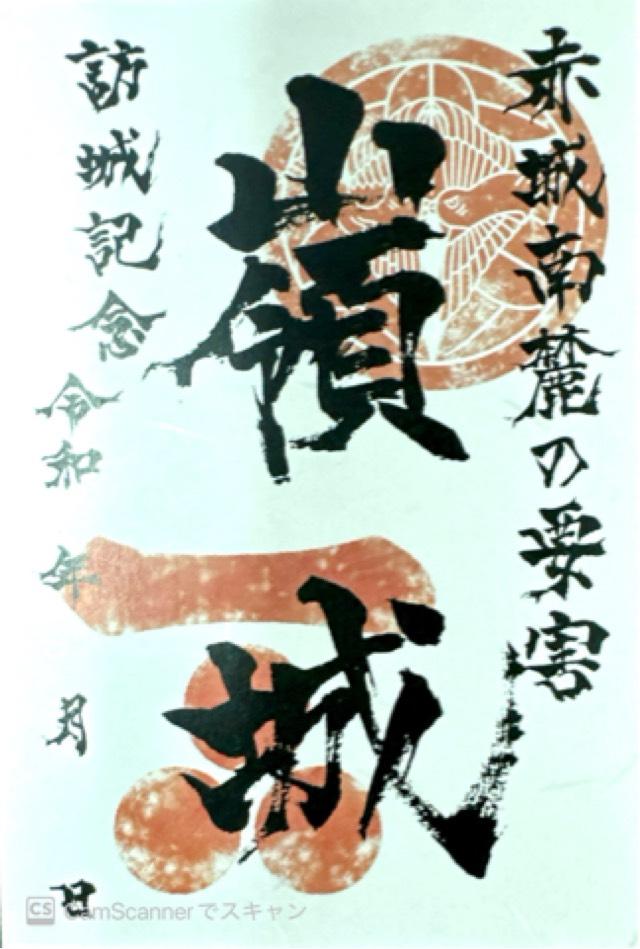 赤城南麓の要害
嶺城
訪城記念令和 年 月 日
CS CamScannerでスキャン